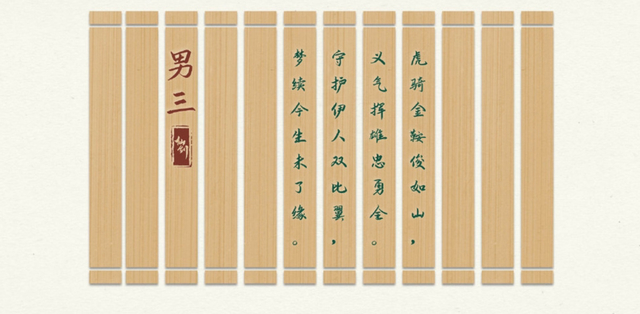 虎骑金鞍俊如山，
义气挥雄忠勇全。
守护伊人双比翼，
梦续今生未了缘。
男三
仙剑